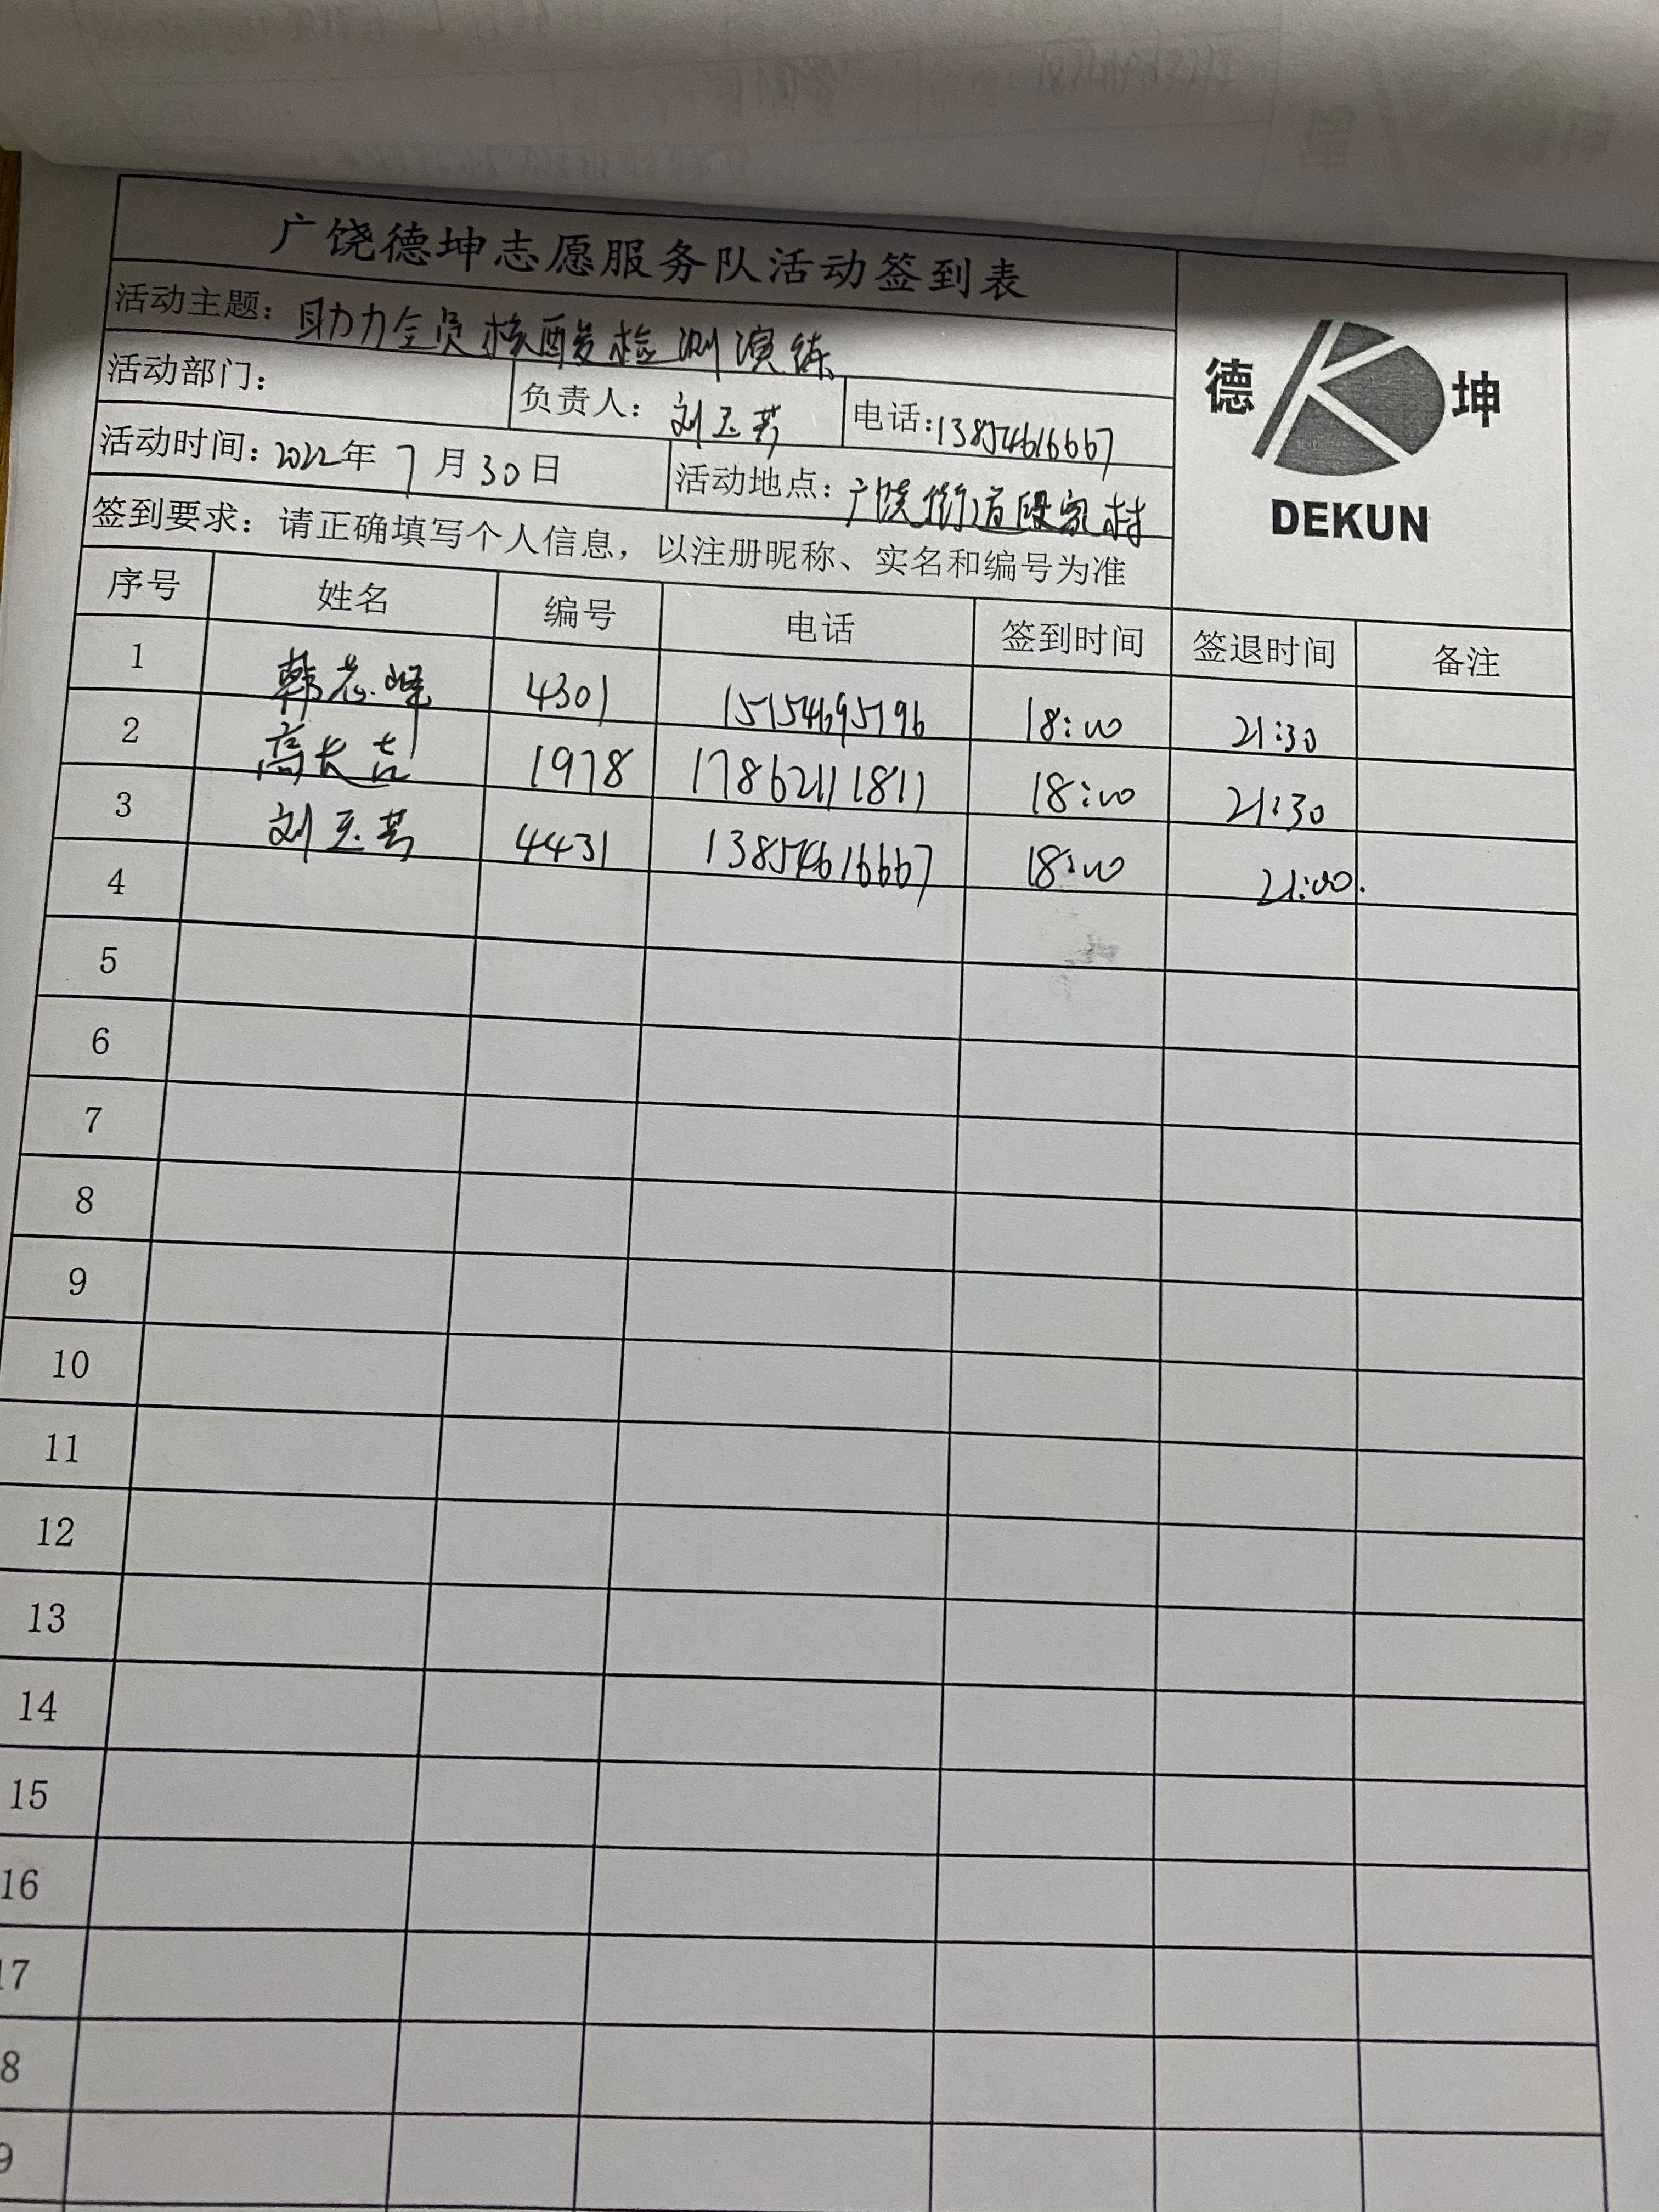 广饶德坤志愿服务队活动签到表
活动主题：助力全员核酸检测演练
德 坤
DEKUN
活动部门： 负责人：刘玉芳 电话:13854616667
活动时间：2022年7月30日 活动地点：广饶街道段家村
签到要求：请正确填写个人信息，以注册昵称、实名和编号为准
序号 姓名 编号 电话 签到时间 签退时间 备注
1 韩志峰 4301 15154695796 18:00 21:30
2 高长吉 1978 17862111811 18:00 21:30
3 刘玉芳 4431 13854616667 18:00 21:00.
4
5
6
7
8
9
10
11
12
13
14
15
16
17
8
9